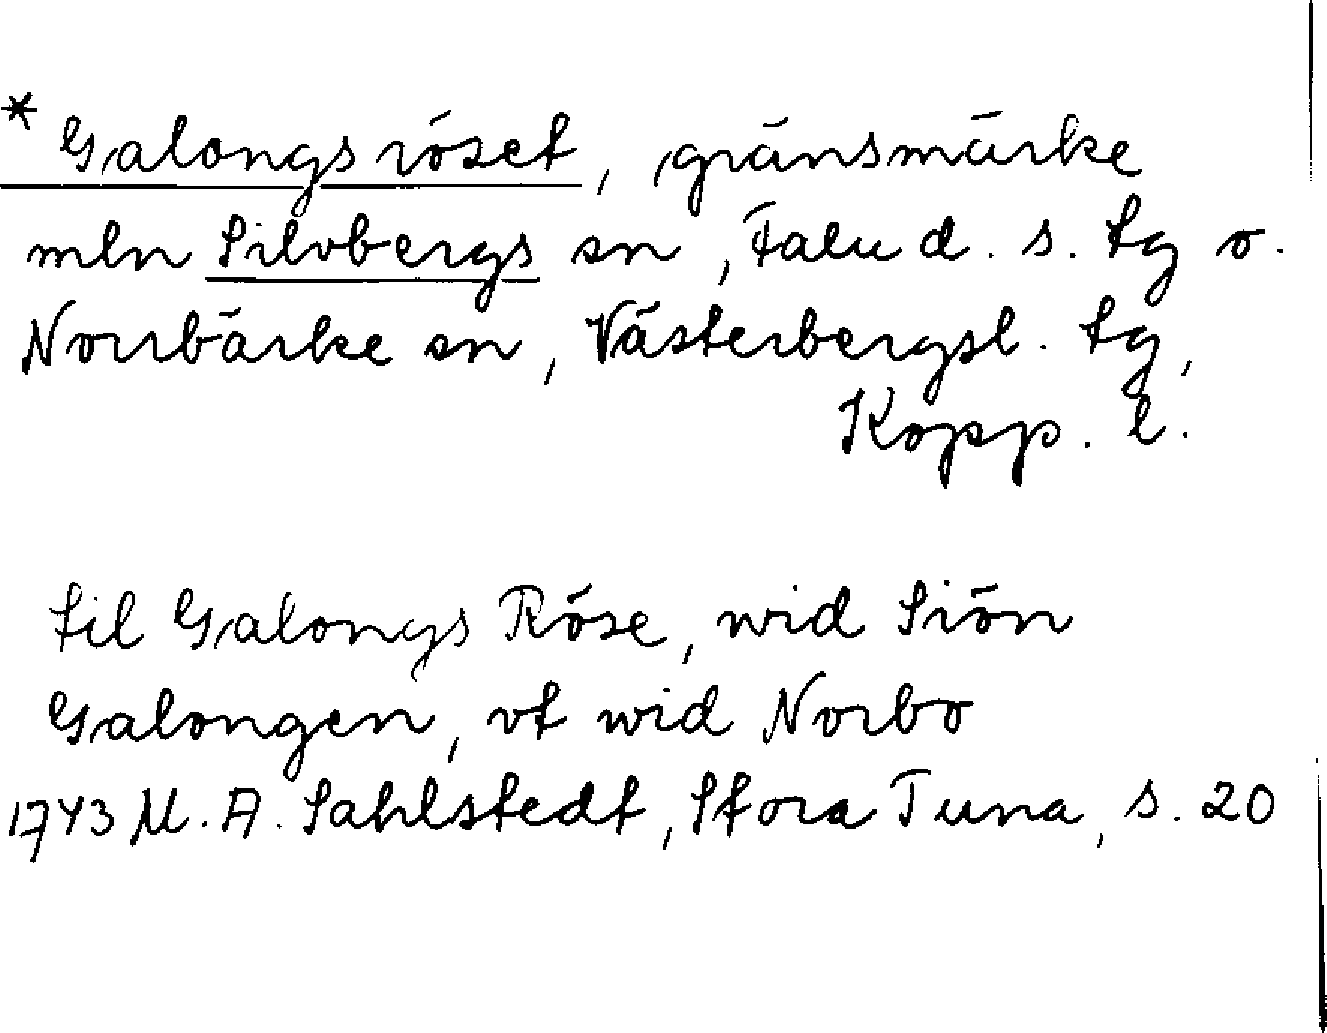 * Galongsröset, gränsmärke
mln Silvbergs sn, Falu d. s. tg o.
Norrbärke sn, Västerbergsl. tg,
Kopp. l.
til Galongs Röse, wid Siön
Galongen, vt wid Norbo
1743 M. A. Sahlstedt, Stora Tuna, s. 20